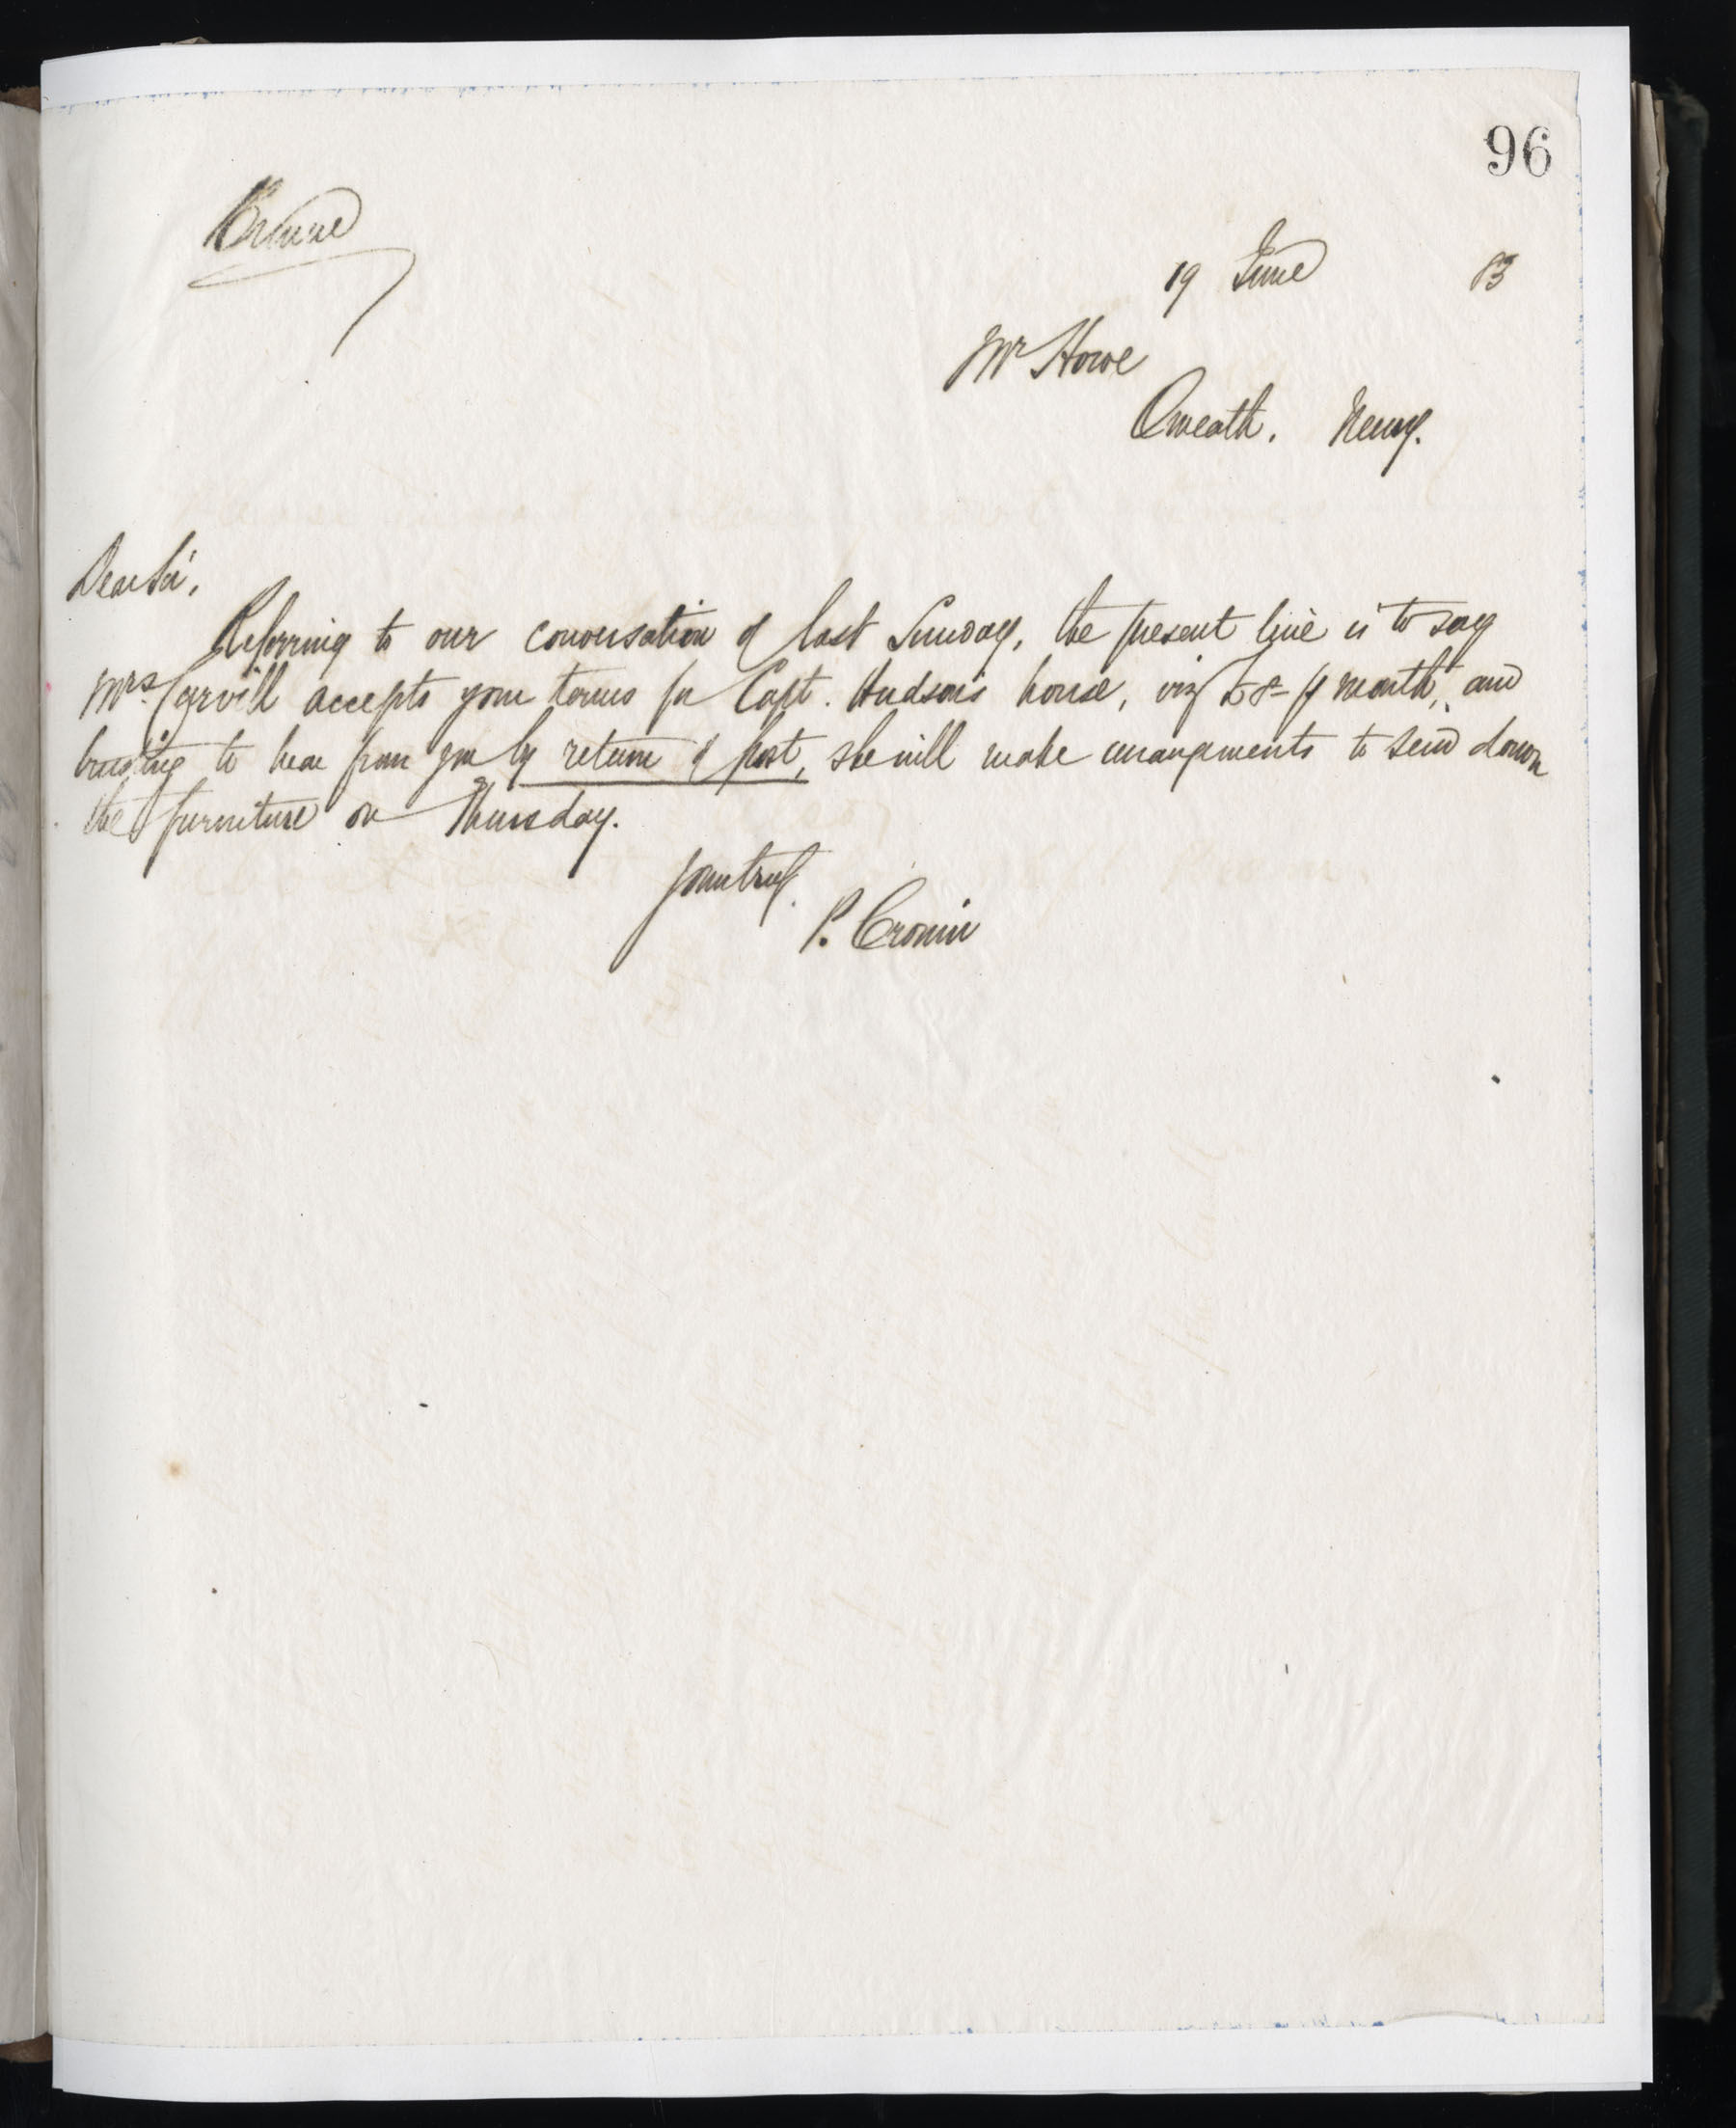 96
19 June 83
Mr Howe
Omeath. Newry.
Dear Sir,
Referring to our conversation of last Sunday, the present line is to say
Mrs. Carvill accepts your terms for Capt. Hudson's house, viz £8 - p month, and
trusting to hear from you by return of post, she will make arrangements to send down
the furniture on Thursday.
Yours truly.
P. Cronin